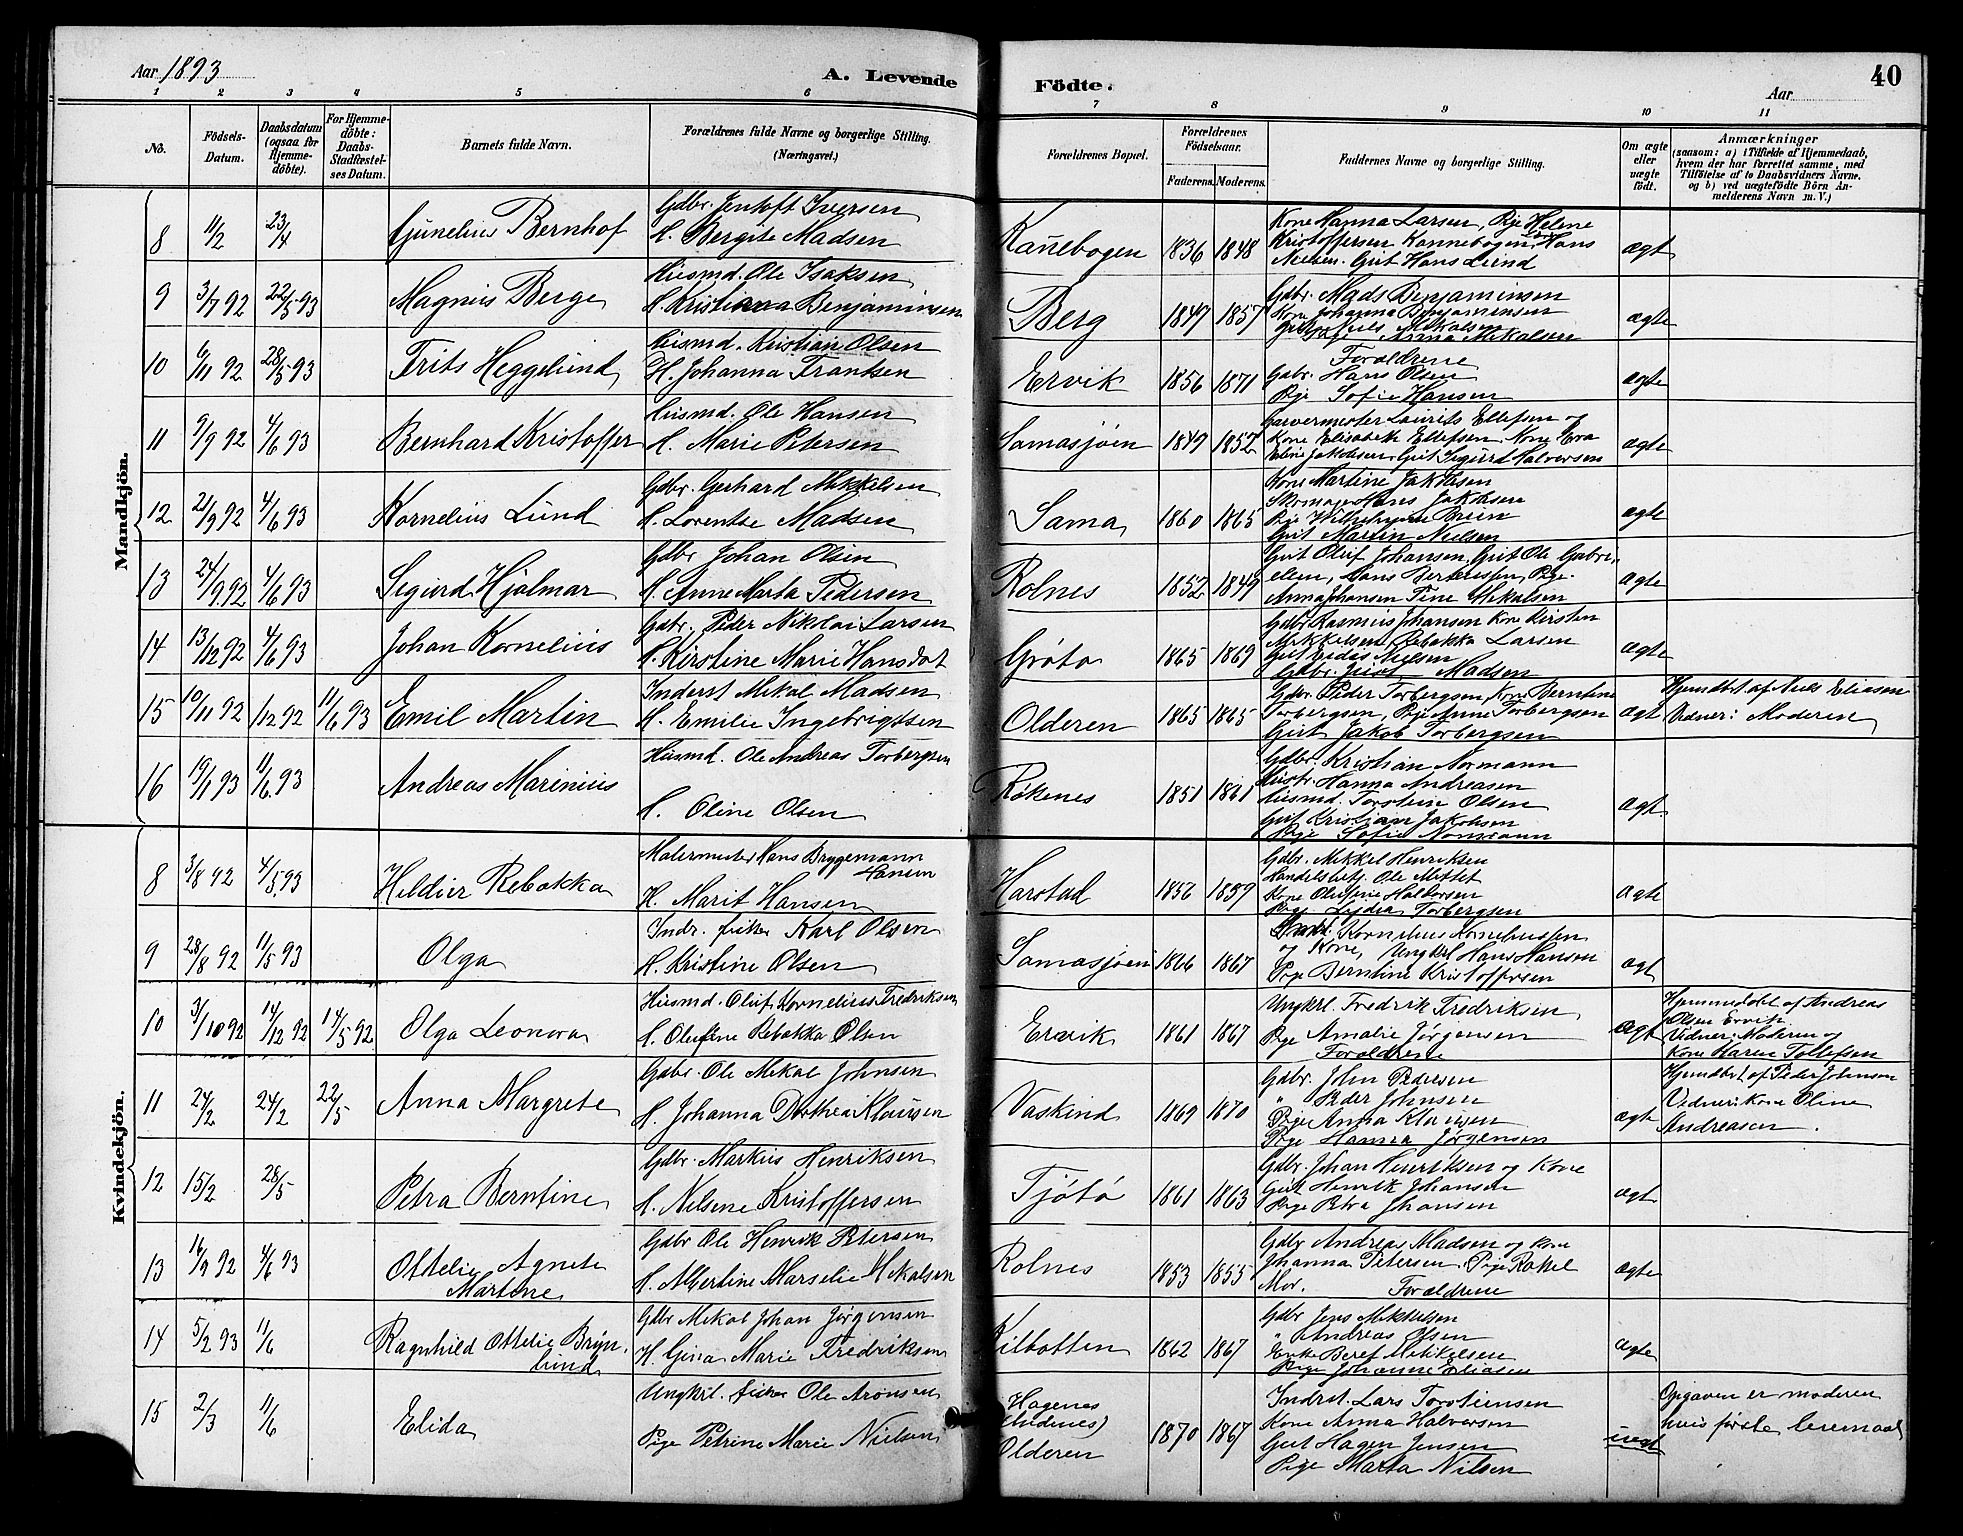 Aar 1893
A. Levende
Födte.
Aar
40
1 2 3 4 5 6 7 8 9 10 11
No.
Födsels-
Datum.
Daabsdatum
(ogsaa for
Hjemme-
döbte).
For Hjemme-
döbte:
Daabs-
Stadfæstel-
ses Datum.
Barnets fulde Navn.
Forældrenes fulde Navne og borgerlige Stilling.
(Næringsvei.)
Forældrenes Bopæl.
Forældrenes
Födselsaar.
Faderens. Moderens.
Faddernes Navne og borgerlige Stilling.
Om ægte
eller
uægte
födt.
Anmærkninger
(saasom: a) i Tilfælde af Hjemmedaab,
hvem der har forrettet samme, med
Tilföielse af to Daabsvidners Navne.
og b) ved uægtefödte Börn An-
melderens Navn m. V.)
Mandkjön.
8 11/2 23/4 Gunelius Bernhof
Gdbr. Jentoft Iversen
H. Bergite Madsen
Kanebogen 1836 1848
Kone Hanna Larsen, Pige Helene
Kristoffersen Kannebogen, Hans
Nielsen. Gut Hans Lund
ægt
9 3/7 92 22/5 93 Magnus Berge
Husmd. Ole Isaksen
H. Kristianna Benjaminsen
Berg 1849 1857
Gdbr. Mads Benjaminsen
Kone Johanna Benjaminsen
Gut Nils Mikalsen
Pige Anna Mikalsen
ægte
10 6/11 92 28/5 93 Frits Heggelund
Husmd. Kristian Olsen
H. Johanna Frantsen
Ervik 1856 1871
Forældrene
Gdbr. Hans Olsen
Pige Sofie Hansen
ægte
11 9/9 92 4/6 93 Bernhard Kristoffer
Husmd. Ole Hansen
H. Marie Petersen
Samasjøen 1849 1852
Garvermester Laurits Ellefsen og
Kone Elisabeth Ellefsen, Kone Eva
Eline Jakobsen, Gut Sigurd Halversen
ægte
12 21/9 92 4/6 93 Kornelius Lund
Gdbr. Gerhard Mikkelsen
H. Lorentse Madsen
Sama 1860 1865
Kone Martine Jakobsen
Skomager Hans Jakobsen
Pige Wilhelmine Bruun
Gut Martin Nielsen
ægte
13 24/9 92 4/6 93 Sigurd Hjalmar
Gdbr Johan Olsen
H. Anne Marta Pedersen
Rolnes 1852 1849
Gut Oluf Johansen, Gut Ole Gabri-
elsen, Hans Berteussen, Pige
Anna Johansen Tine Mikalsen
ægte
14 13/12 92 4/6 93 Johan Kornelius
Gdbr. Peder Nikolai Larsen
H. Kirstine Marie Hansdat
Grøtø 1865 1869
Gdbr Rasmus Johansen Kone Kirsten
Mikkelsen, Rebakka Larsen
Gut Nielsen
Gdbr. Just Madsen
ægte
15 10/11 92 1/12 92 11/6 93 Emil Martin
Inderst Mikal Madsen
H. Emilie Ingebrigtsen
Olderen 1865 1865
Gdbr. Peder Torbergsen, Kone Berntine
Torbergsen, Pige Anne Torbergsen
Gut Jakob Torbergsen
ægt
Hjemdbt af Niels Eliasen
Vidner: Moderen
16 19/1 93 11/6 93 Andreas Marinius
Husmd. Ole Andreas Torbergsen
H. Oline Olsen
Røkenes 1851 1861
Gdbr. Kristian Normann
Hustr. Hanna Andreasen
Husmd. Torstein Olsen
Gut Kristian Jakobsen
Pige Sofie Normann
ægt
Kvindekjön.
8 3/8 92 4/5 93 Heldier Rebakka
Malermester Hans Bryggemann
Hansen
H. Marit Hansen
Harstad 1852 1859
Gdbr. Mikkel Henriksen
Handelsbetj. Ole Mittet
Kone Olufine Halvorsen
Pige Lydia Torbergsen
ægte
9 28/8 92 11/5 93 Olga
Indr. fisker Karl Olsen
H. Kristine Olsen
Samasjøen 1866 1867
Kornelius Korneliussen
og Kone, Ungkrl Hans Hanson
Pige Berntine Kristoffersen
ægt
10 3/10 92 14/12 92 14/5 92 Olga Leonora
Husmd. Oluf Kornelius Fredriksen
H. Olufine Rebakka Olsen
Ervik 1861 1867
Ungkrl. Fredrik Fredriksen
Pige Amalie Jørgensen
Forældrene
ægt
Hjemmedøbt af Andreas
Olsen Ervik
Vidner: Moderen og
Kone Maren Tollefsen
11 24/2 24/2 22/5 Anna Margrete
Gdbr. Ole Mikal Johnsen
H. Johanna Dorthea Klausen
Vaskind 1869 1870
Gdbr. John Pedersen
" Peder Johnsen
Pige Anna Klausen
Pige Hanna Jørgensen
ægt
Hjemdbt af Peder Johnson
Vidner: Kone Oline
Andreasen.
12 15/2 28/5 Petra Berntine
Gdbr. Markus Henriksen
H. Nelsene Kristoffersen
Tjøtø 1861 1863
Gdbr. Johan Henriksen og Kone
Gut Henrik Johansen
Pige Petra Johansen
ægt
13 16/9 92 4/6 93 Ottelie Agnete
Martine
Gdbr Ole Henrik Petersen
H. Albertine Marselie Mikalsen
Rolnes 1853 1855
Gdbr Andreas Madsen og Kone
Johanna Petersen, Pige Rakel
Mor. Forældrene
ægte
14 5/2 93 11/6 Ragnhild Ottelie Bryn-
lund
Gdbr Mikal Johan Jørgensen
H. Gina Marie Fredriksen
Kilbotten 1862 1867
Gdbr Jens Mikkelsen
" Andreas Olsen
Enke Beret Mikkelsen
Pige Johanne Eliasen
ægte
15 2/3 11/6 Elida
Ungkrl. fisker Ole Aronsen
Pige Petrine Marie Nielsen
Hagenes
Olderen 1870 1867
Indrst. Lars Torstensen
Kone Anna Halversen
Gut Hagen Jensen
Pige Marta Nilsen
uegt
Opgaven er moderen
hvis første leiermaal